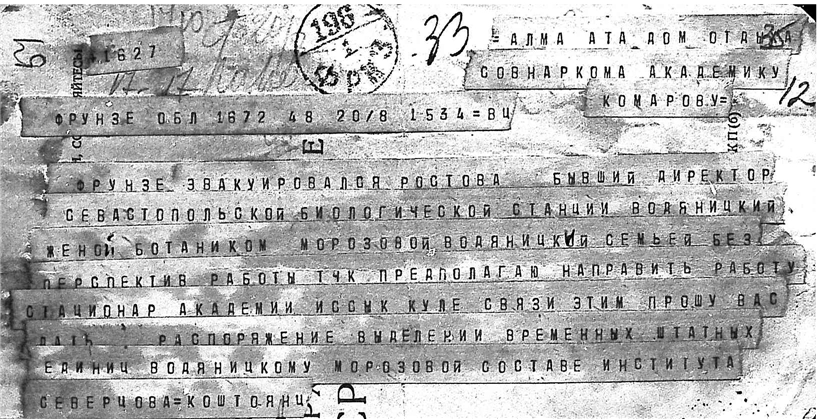 41627
196
ФРКЗ
33
=АЛМА АТА ДОМ ОТДЫХА
35
СОВНАРКОМА АКАДЕМИКУ
КОМАРОВУ=
12
ФРУНЗЕ ОБЛ 1672 48 20/8 1534=ВЦ
КП(б)
ФРУНЗЕ ЭВАКУИРОВАЛСЯ РОСТОВА БЫВШИЙ ДИРЕКТОР
СЕВАСТОПОЛЬСКОЙ БИОЛОГИЧЕСКОЙ СТАНЦИИ ВОДЯНИЦКИЙ
ЖЕНОЙ БОТАНИКОМ МОРОЗОВОЙ ВОДЯНИЦКИЙ СЕМЬЕЙ БЕЗ
ПЕРСПЕКТИВ РАБОТЫ ТЧК ПРЕДПОЛАГАЮ НАПРАВИТЬ РАБОТУ
СТАЦИОНАР АКАДЕМИИ ИССЫК КУЛЕ СВЯЗИ ЭТИМ ПРОШУ ВАС
ДАТЬ РАСПОРЯЖЕНИЕ ВЫДЕЛЕНИИ ВРЕМЕННЫХ ШТАТНЫХ
ЕДИНИЦ ВОДЯНИЦКОМУ МОРОЗОВОЙ СОСТАВЕ ИНСТИТУТА
СЕВЕРЦОВА=КОШТОЯНЦ